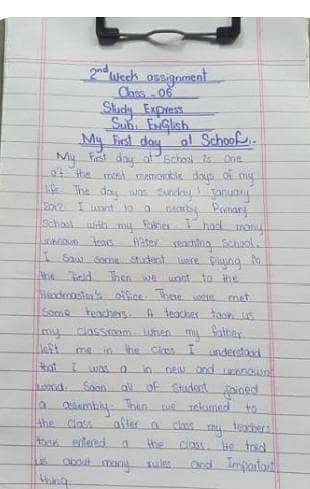 2nd week assignment
Class - 06
Study Express
Sub: English
My First day at School:-
My First day at School is one
of the most memorable days of my
life. The day was Sunday 1 January
2012. I want to a nearby Primary
School with my Father. I had many
unknown fears. After reaching School.
I Saw Some Student were Playing in
the Field. Then we want to the
Headmaster's office. There were met
Some teachers. A teacher took us
my classroom. when my father
left me in the class I understood
that I was a in new and unknown
world. Soon all of Student joined
a assembly. Then we returned to
the class after a class my teachers
took entered a the class. He told
us about many rules and Important
thing.